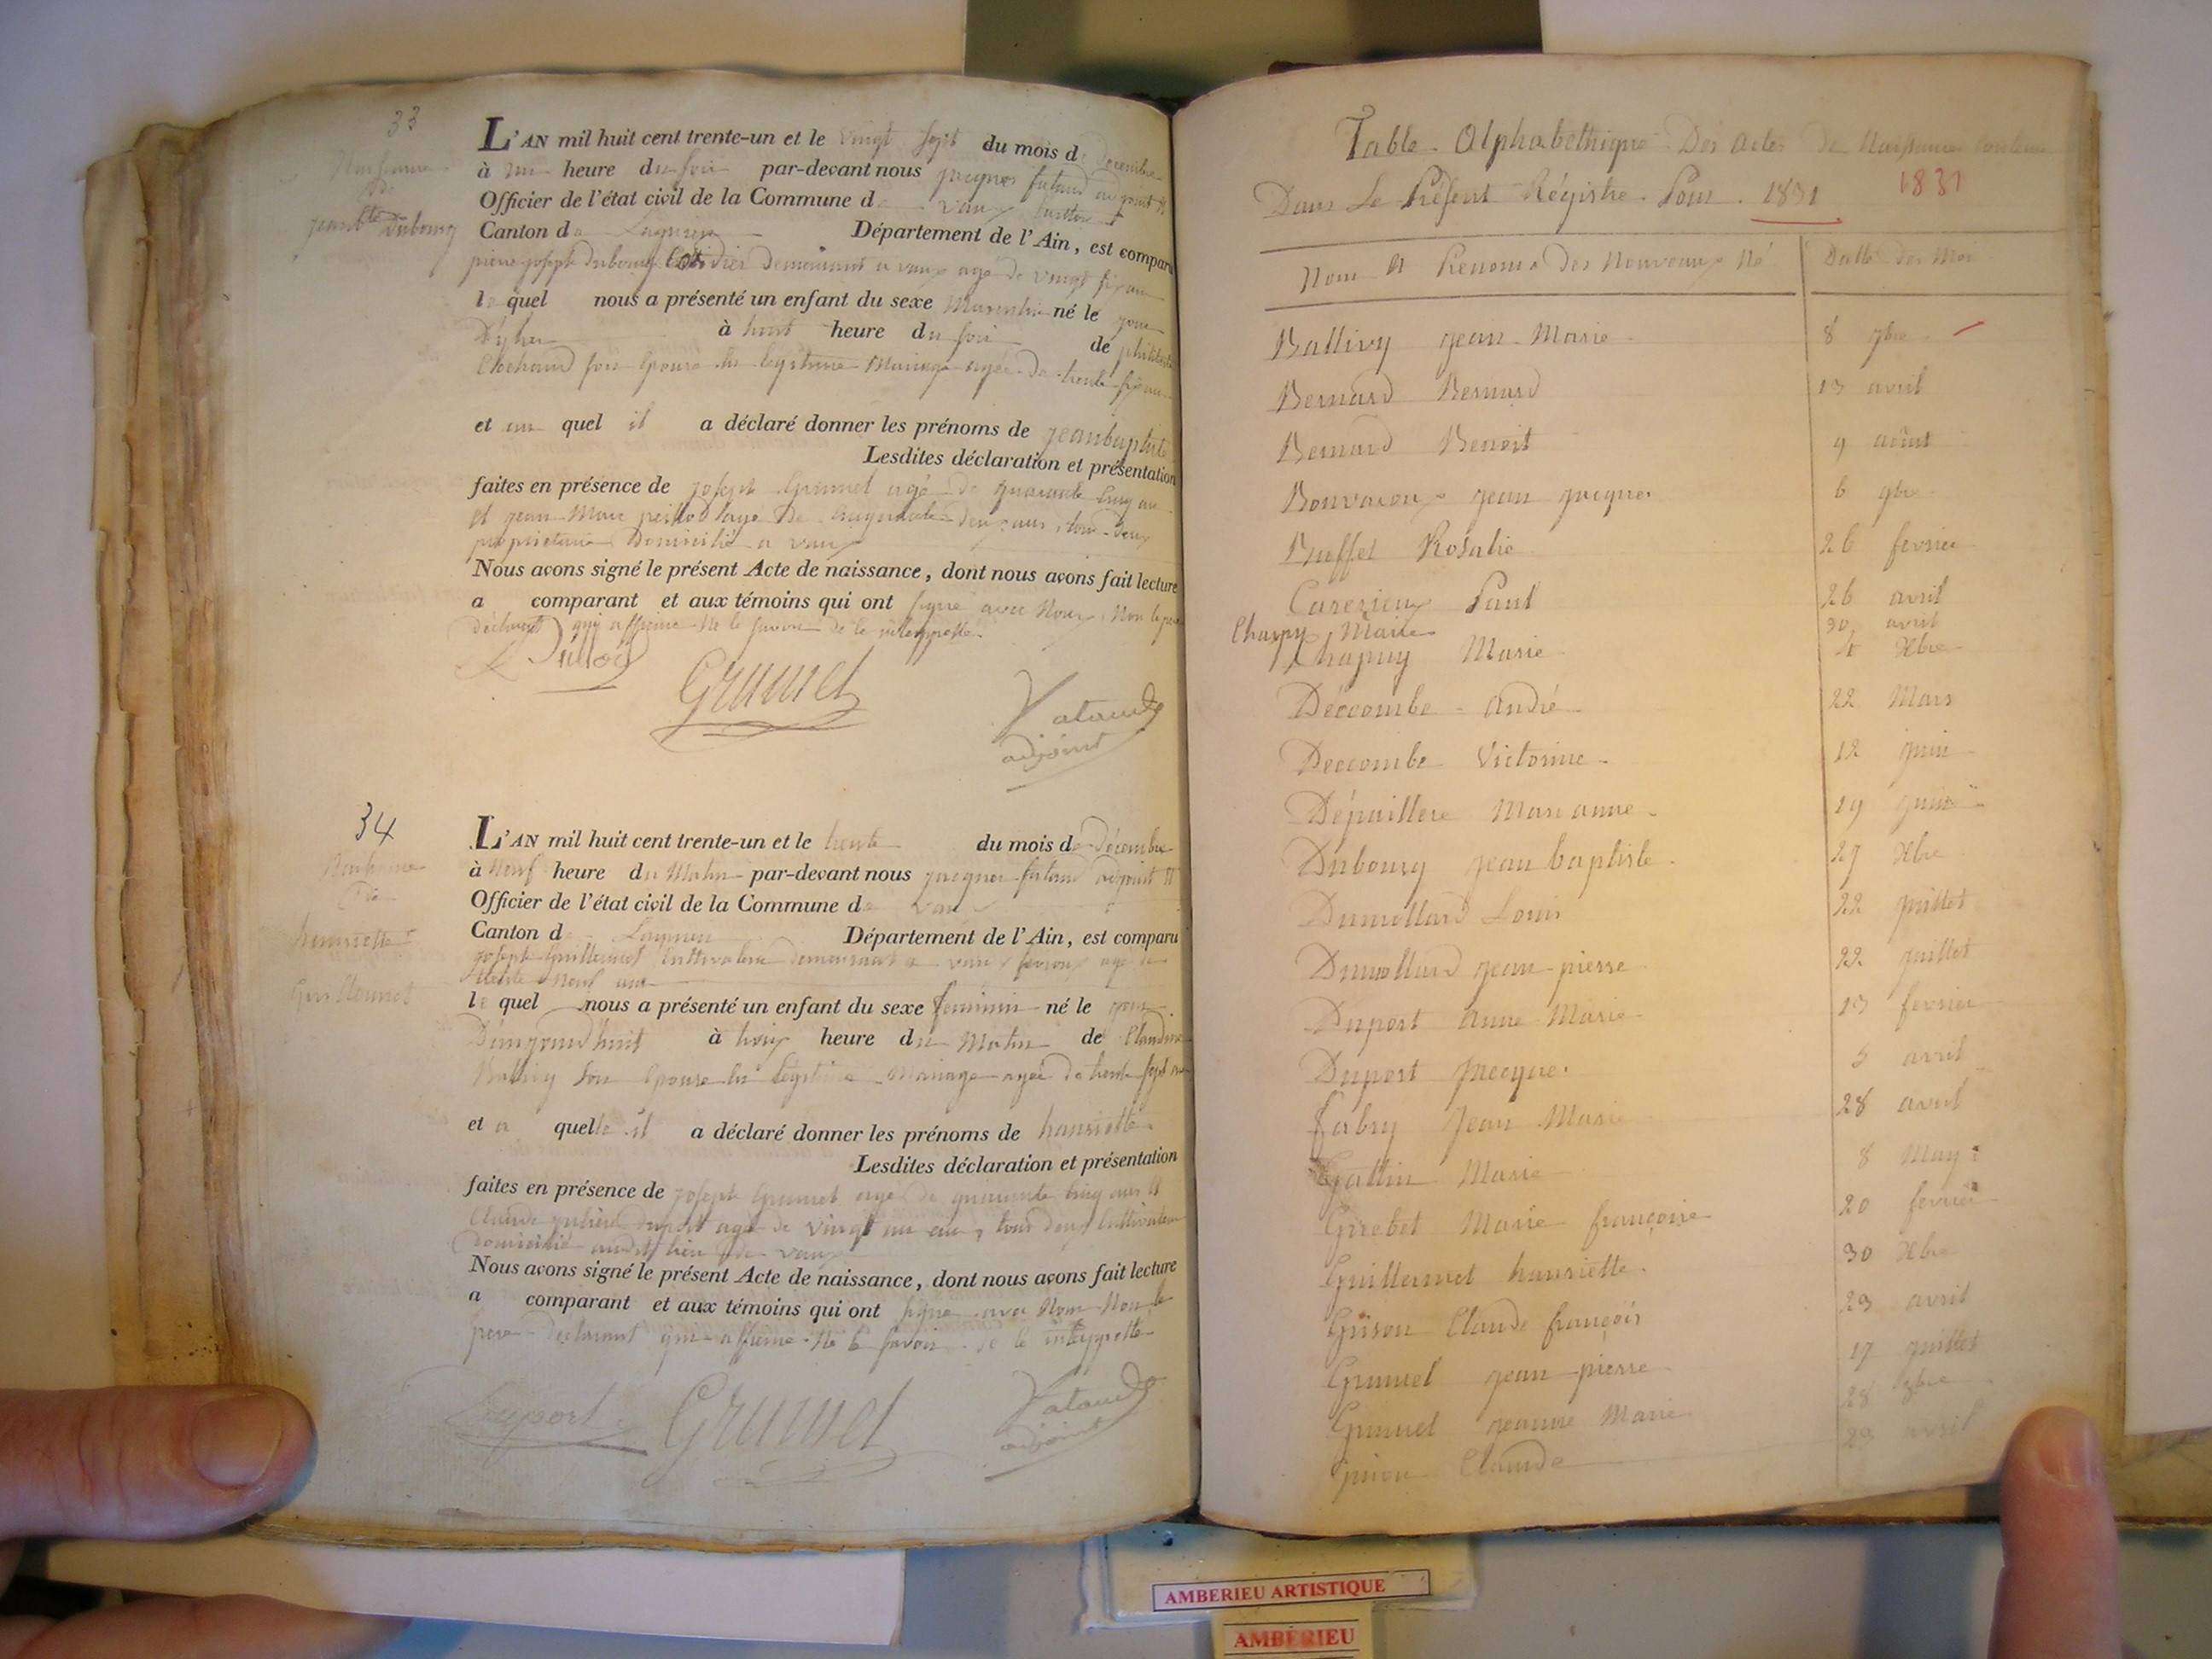 33
Naissance
de
jean bte Dubourg
L'AN mil huit cent trente-un et le vingt sept du mois de Decembre
à une heure du soir par-devant nous jacques fataud adjoint et
Officier de l'état civil de la Commune de vaux
Canton de Lagnieu Département de l'Ain, est comparu
pierre joseph dubourg demeurant a vaux agé de vingt six ans
le quel nous a présenté un enfant du sexe Masculin né le jour
D'yher à huit heure du soir de
son épouse en legitime Mariage agée de trente six ans
et au quel il a déclaré donner les prénoms de jean baptiste
Lesdites déclaration et présentation
faites en présence de joseph Grumel agé de quarante cinq ans
et jean Marc agé de cinquante deux ans, tous deux
proprietaire Domicilié a vaux
Nous avons signé le présent Acte de naissance, dont nous avons fait lecture
a comparant et aux témoins qui ont signé avec Nous, Non le pere
déclarant qui affirme Ne le savoir de ce interpellé
Grumel
fataud
adjoint
34
Naissance
de
henriette
Guillermet
L'AN mil huit cent trente-un et le trente du mois de Décembre
à Neuf heure du Matin par-devant nous jacques fataud adjoint et
Officier de l'état civil de la Commune de vaux
Canton de Lagnieu Département de l'Ain, est comparu
joseph Guillermet Cultivateur demeurant a vaux fevroux agé de
trente Neuf ans
le quel nous a présenté un enfant du sexe feminin né le jour
D'aujourd'huit à trois heure du Matin de Claudine
Ballivy son épouse en légitime Mariage agée de trente sept ans
et a quelle il a déclaré donner les prénoms de hanriette
Lesdites déclaration et présentation
faites en présence de joseph Grumel agé de quarante cinq ans et
Claude julien duport agé de vingt un ans, tous deux Cultivateur
Domicilié audit lieu de vaux
Nous avons signé le présent Acte de naissance, dont nous avons fait lecture
a comparant et aux témoins qui ont signé avec Nous Non le
pere déclarant qui affirme Ne le savoir de ce interppellé
Duport Grumel fataud
adjoint
Table Alphabethique Des actes de Naissance contenu
Dans Le Présent Régistre Pour 1831 1831
Nom et Prenoms des Nouveaux Né Datte des Mois
Ballivy jean Marie 8 7bre
Bernard Bernard 13 avril
Bernard Benoit 9 août
Bonvaroux jean jacques 6 9bre
Buffet Rosalie 26 fevrier
Carezieux Paul 26 avril
Charpy Marie 30 avril
Chapuy Marie 4 Xbre
Déccombe André 22 Mars
Deccombe Victorine 12 juin
Dépaillere Marianne 19 juin
Dubourg jean baptiste 27 Xbre
Dumollard Louis 22 juillet
Dumollard jean-pierre 22 juillet
Duport Anne Marie 13 fevrier
Duport Jacques 5 avril
fabry Jean Marie 28 avril
Gallin Marie 8 May
Grobet Marie françoise 20 fevrier
Guillermet hanriette 30 Xbre
Grison Claude françois 23 avril
Grumel jean pierre 17 juillet
Grumel jeanne Marie 28 9bre
Claude 29 avril
AMBERIEU ARTISTIQUE
AMBERIEU